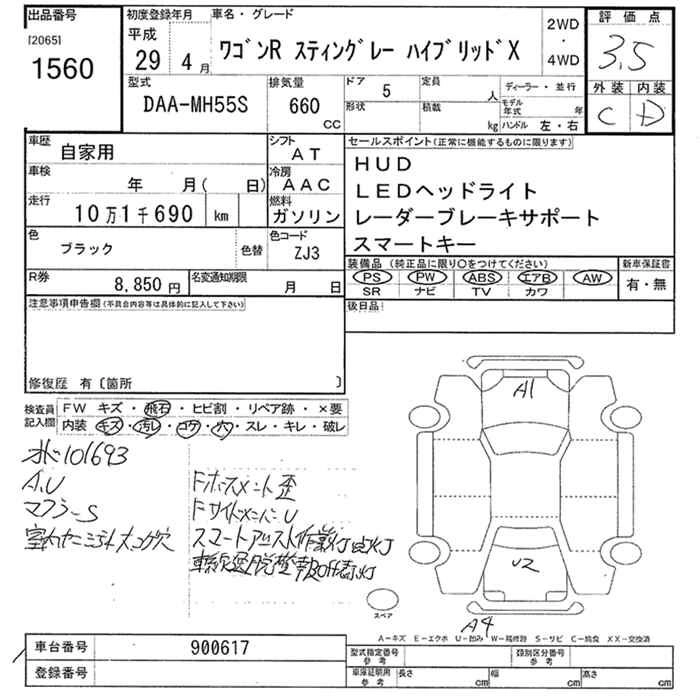 出品番号
[2065]
1560
初度登録年月
平成
29 4 月
車名・グレード
ワゴンR スティングレー ハイブリッドX
2WD
・
4WD
評価点
3,5
外装 内装
C D
型式
DAA-MH55S
排気量
660
CC
ドア 5
形状
定員
人
積載
kg
ディーラー・並行
モデル年式 年
ハンドル 左・右
車歴
自家用
シフト
AT
車検
年 月( 日)
冷房
AAC
走行
10万1千690 km
燃料
ガソリン
色
ブラック
色替
色コード
ZJ3
R券
8,850 円
名変通知期限
月 日
セールスポイント(正常に機能するものに限ります)
HUD
LEDヘッドライト
レーダーブレーキサポート
スマートキー
装備品 (純正品に限り○をつけてください)
PS PW ABS エアB AW
SR ナビ TV カワ
新車保証書
有・無
後日品
注意事項申告欄(不具合内容等は具体的に記入して下さい)
修復歴 有〔箇所 〕
検査員記入欄
FW キズ・飛石・ヒビ割・リペア跡・×要
内装 キズ・汚レ・コゲ・穴・スレ・キレ・破レ
101693
A,U
マフラーS
Fホースメント歪
FサイドメンバーU
スマートアシスト作業灯点灯
車線逸脱警報OFF点灯
A1
U2
A4
スペア
A-キズ E-エクボ U-凹み W-補修跡 S-サビ C-腐食 XX-交換済
車台番号
900617
登録番号
型式指定番号
参考
類別区分番号
参考
車庫証明用
参考
長さ cm
幅 cm
高さ cm